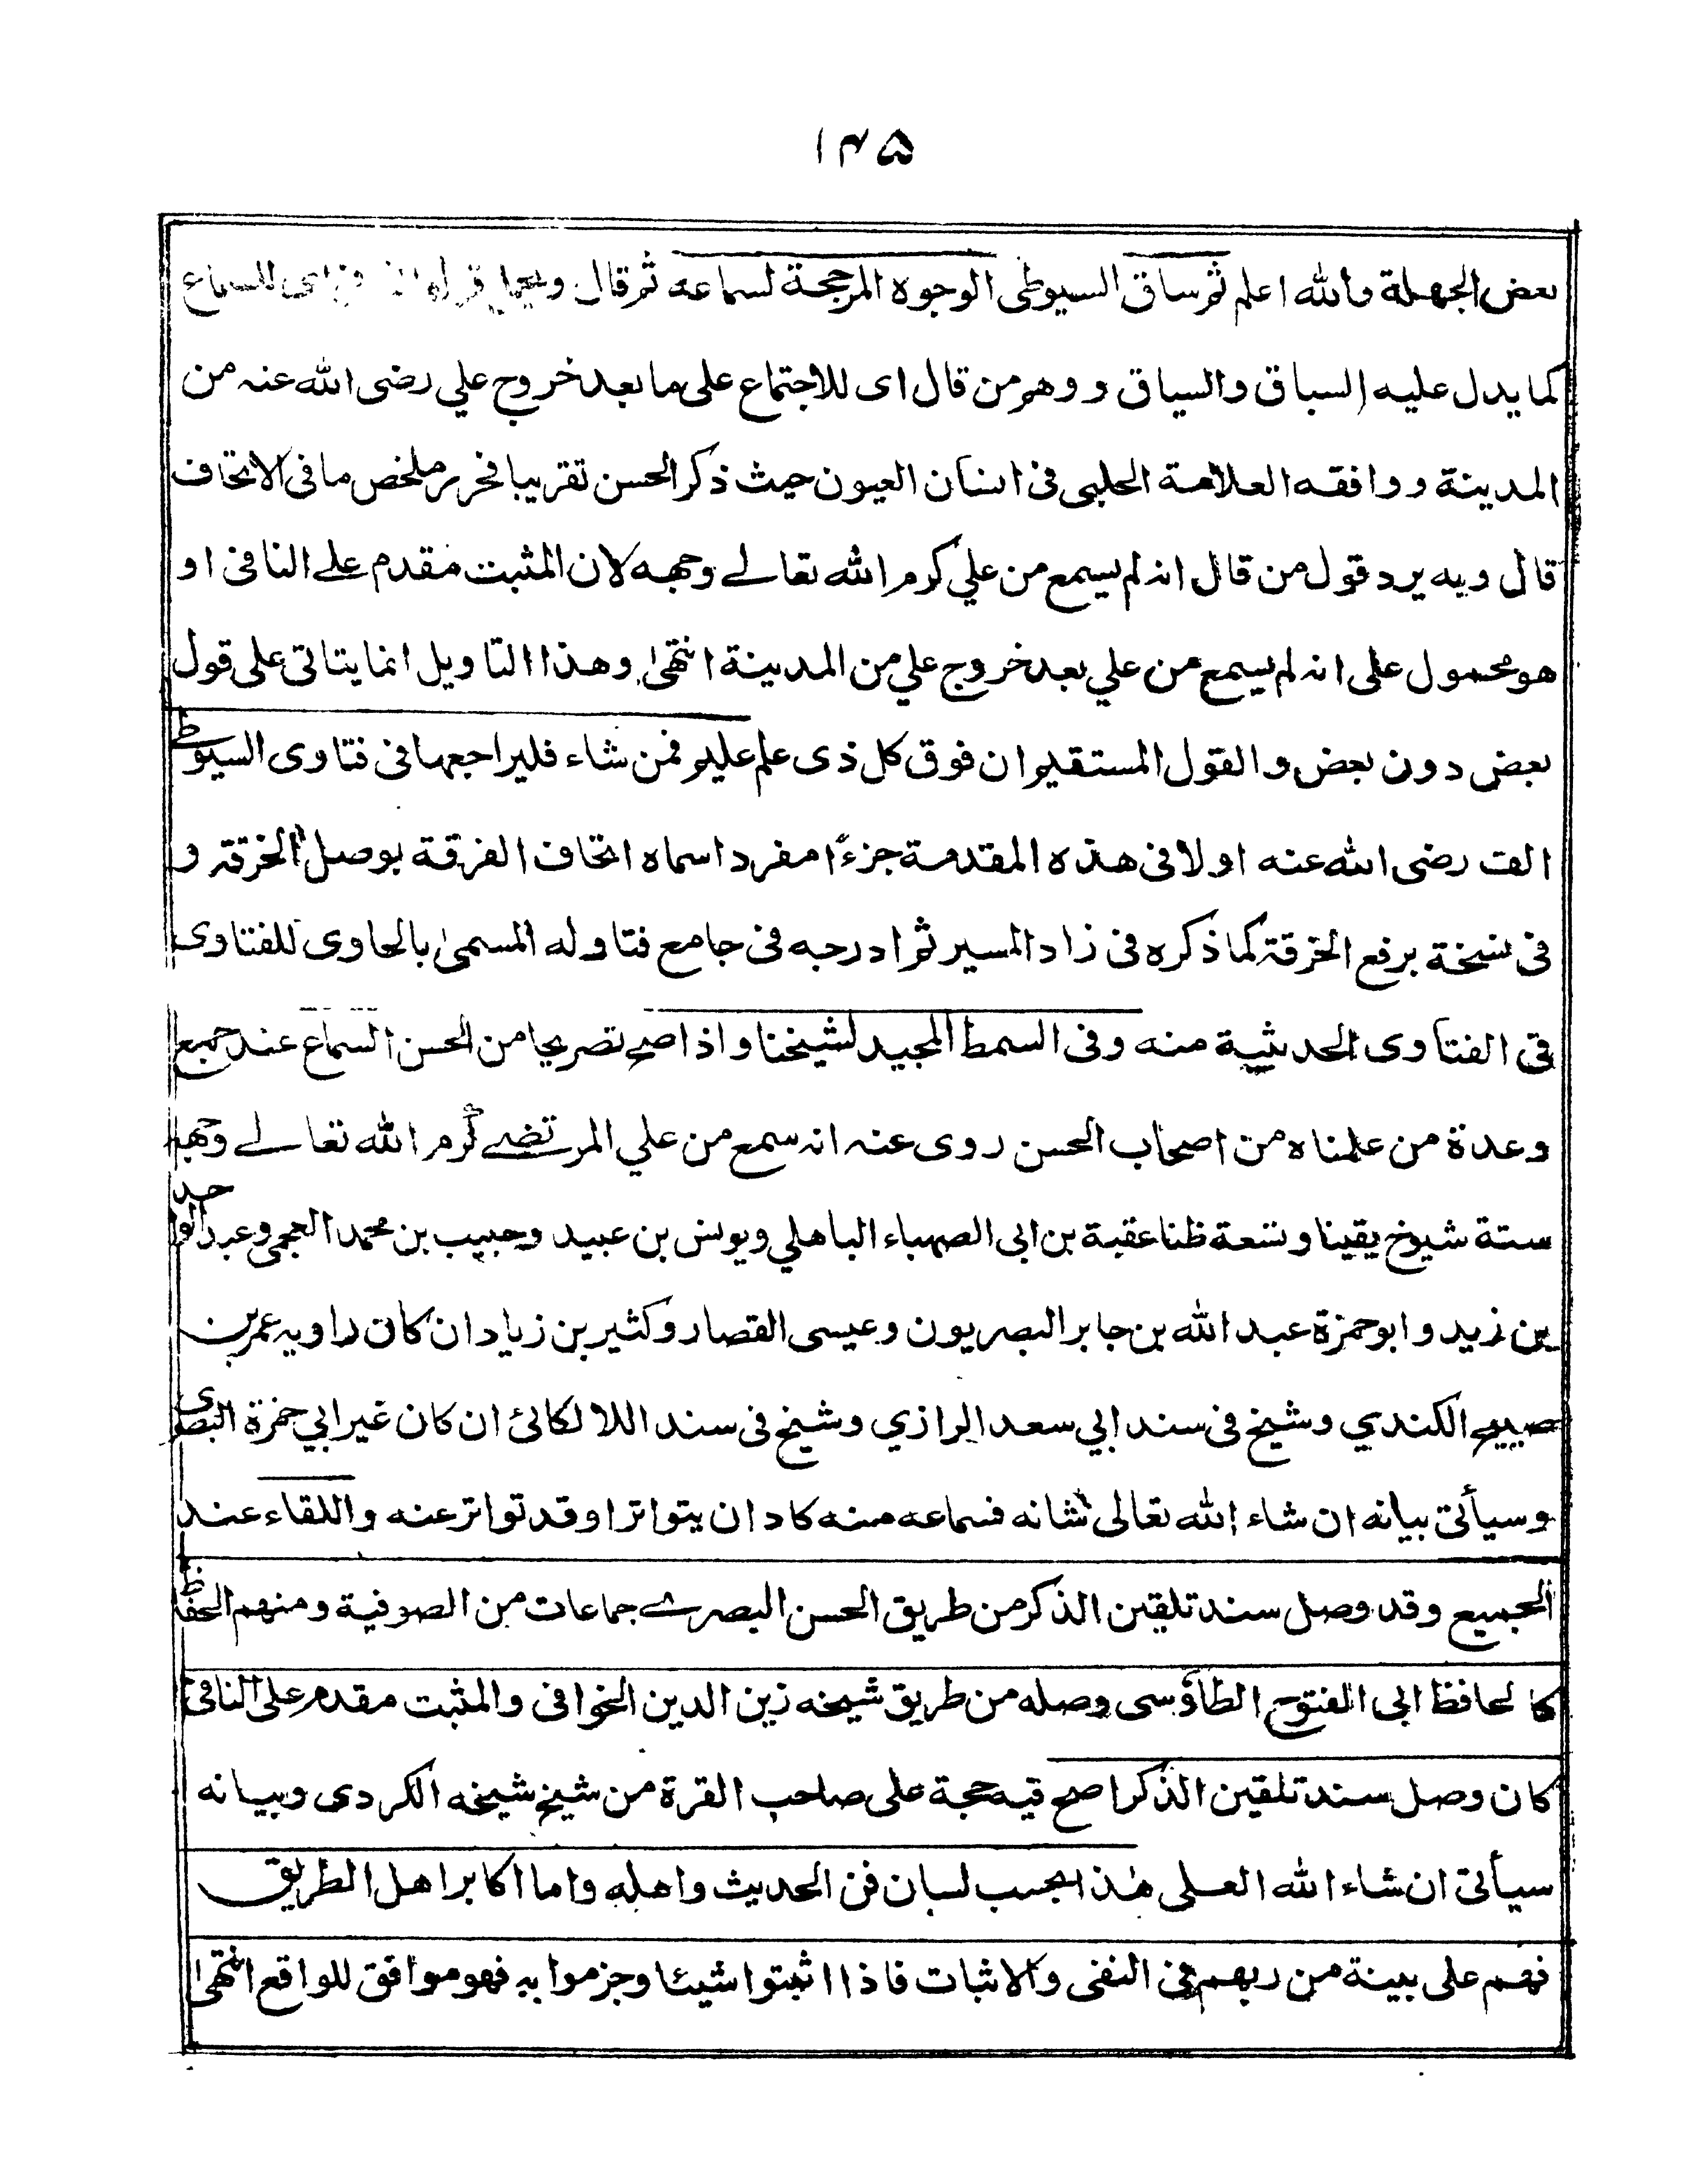 ۱۴۵
بعض الجهلة والله اعلم ثم ساق السيوطى الوجوه المرجحة لسماعه ثم قال للسماع
كما يدل عليه السباق والسياق ووهم من قال اى للاجتماع على ما بعد خروج علي رضى الله عنه من
المدينة ووافقه العلامة الحلبى فى انسان العيون حيث ذكر الحسن تقريبا فحرر ملخص ما فى الاتحاف
قال وبه يرد قول من قال انه لم يسمع من علي كرم الله تعالے وجهه لان المثبت مقدم علے النافى او
هو محمول على انه لم يسمع من علي بعد خروج علي من المدينة انتهى وهذا التاويل انما يتاتى على قول
بعض دون بعض والقول المستقيم ان فوق كل ذى علم عليم فمن شاء فليراجعها فى فتاوى السيوطے
الف رضى الله عنه اولا فى هذه المقدمة جزءًا مفردا سماه اتحاف الفرقة بوصل الخرقة و
فى نسخة برفع الخرقة كما ذكره فى زاد المسير ثم ادرجه فى جامع فتاوله المسمى بالحاوى للفتاوى
فى الفتاوى الحديثية منه وفى السمط المجيد لشيخنا واذا صح تصريحا من الحسن السماع عند جميع
وعدة من علمناه من اصحاب الحسن روى عنه انه سمع من علي المرتضے كرم الله تعالے وجهه
ستة شيوخ يقينا وتسعة ظنا عقبة بن ابى الصهباء الباهلي ويونس بن عبيد وحبيب بن محمد العجمى وعبد الواحد
بن زيد وابو حمزة عبد الله بن جابر البصريون وعيسى القصار وكثير بن زياد ان كان راويه عمر بن
صبيح الكندي وشيخ فى سند ابي سعد الرازي وشيخ فى سند اللالكائى ان كان غير ابي حمزة البصرى
وسيأتى بيانه ان شاء الله تعالى شانه فسماعه منه كاد ان يتواترا وقد تواتر عنه واللقاء عند
الجميع وقد وصل سند تلقين الذكر من طريق الحسن البصرے جماعات من الصوفية ومنهم الحفاظ
كالحافظ ابى الفتوح الطاؤسى وصله من طريق شيخه زين الدين الخوافى والمثبت مقدم على النافى
كان وصل سند تلقين الذكر اصح فيه حجة على صاحب القرة من شيخ شيخه الكردى وبيانه
سيأتى ان شاء الله العلى هذا بحسب لسان فن الحديث واهله واما اكابر اهل الطريق
فهم على بينة من ربهم فى النفى والاثبات فاذا اثبتوا شيئا وجزموا به فهو موافق للواقع انتهى